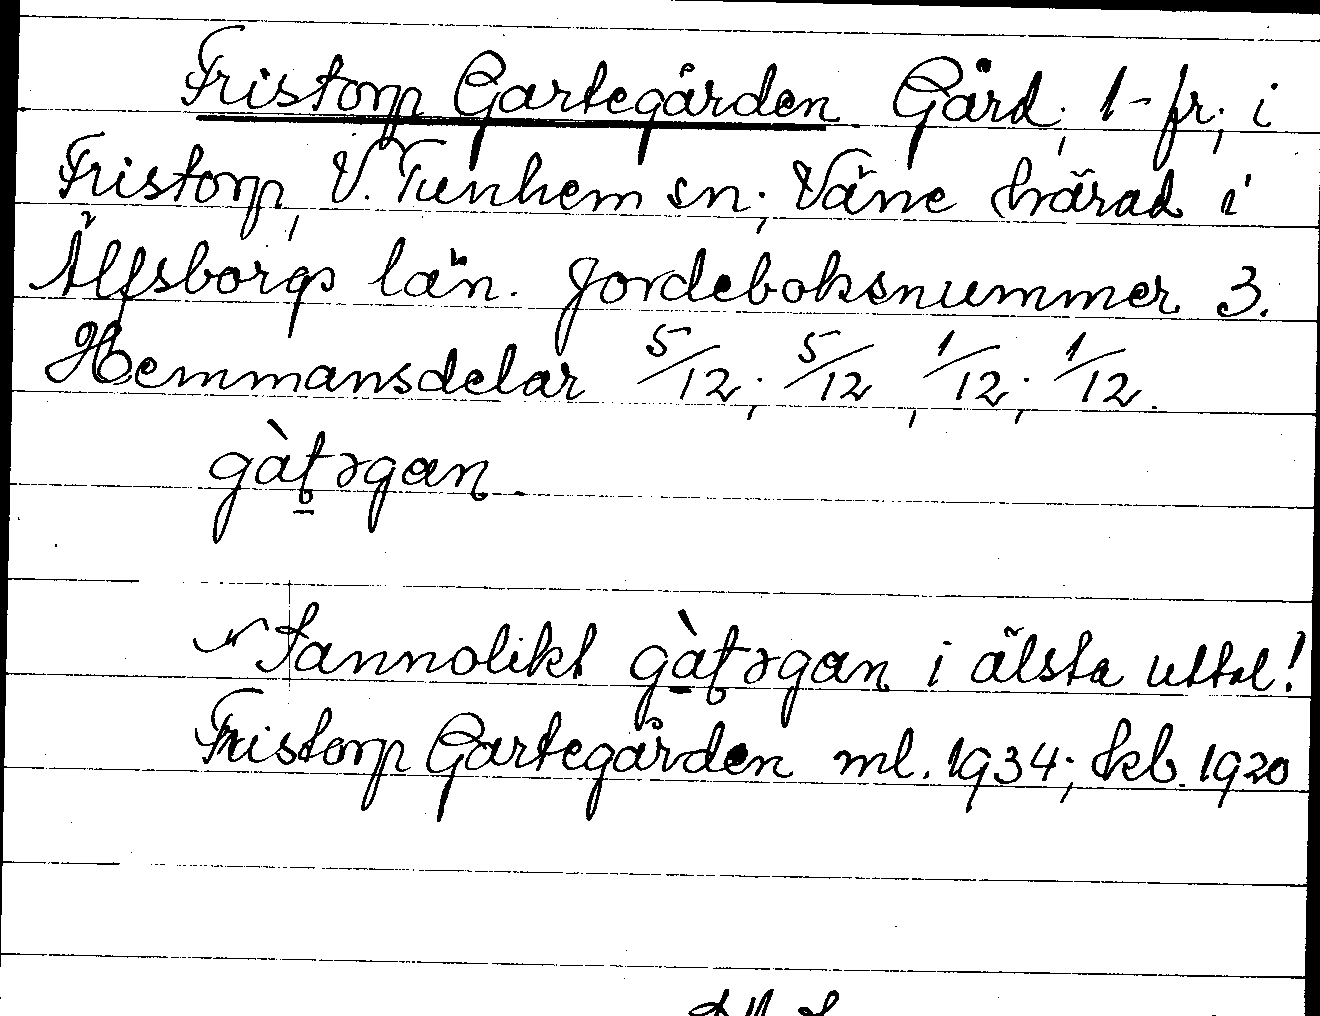 Fristorp Gartegården Gård; 1-fr; i
Fristorp, V. Tunhem sn; Väne härad i
Älfsborgs län. Jordeboksnummer 3.
Hemmansdelar 5/12; 5/12, 1/12; 1/12.
gàʈəgan.
Sannolikt gàʈəgan i älsta uttal!
Fristorp Gartegården ml. 1934; kb. 1920